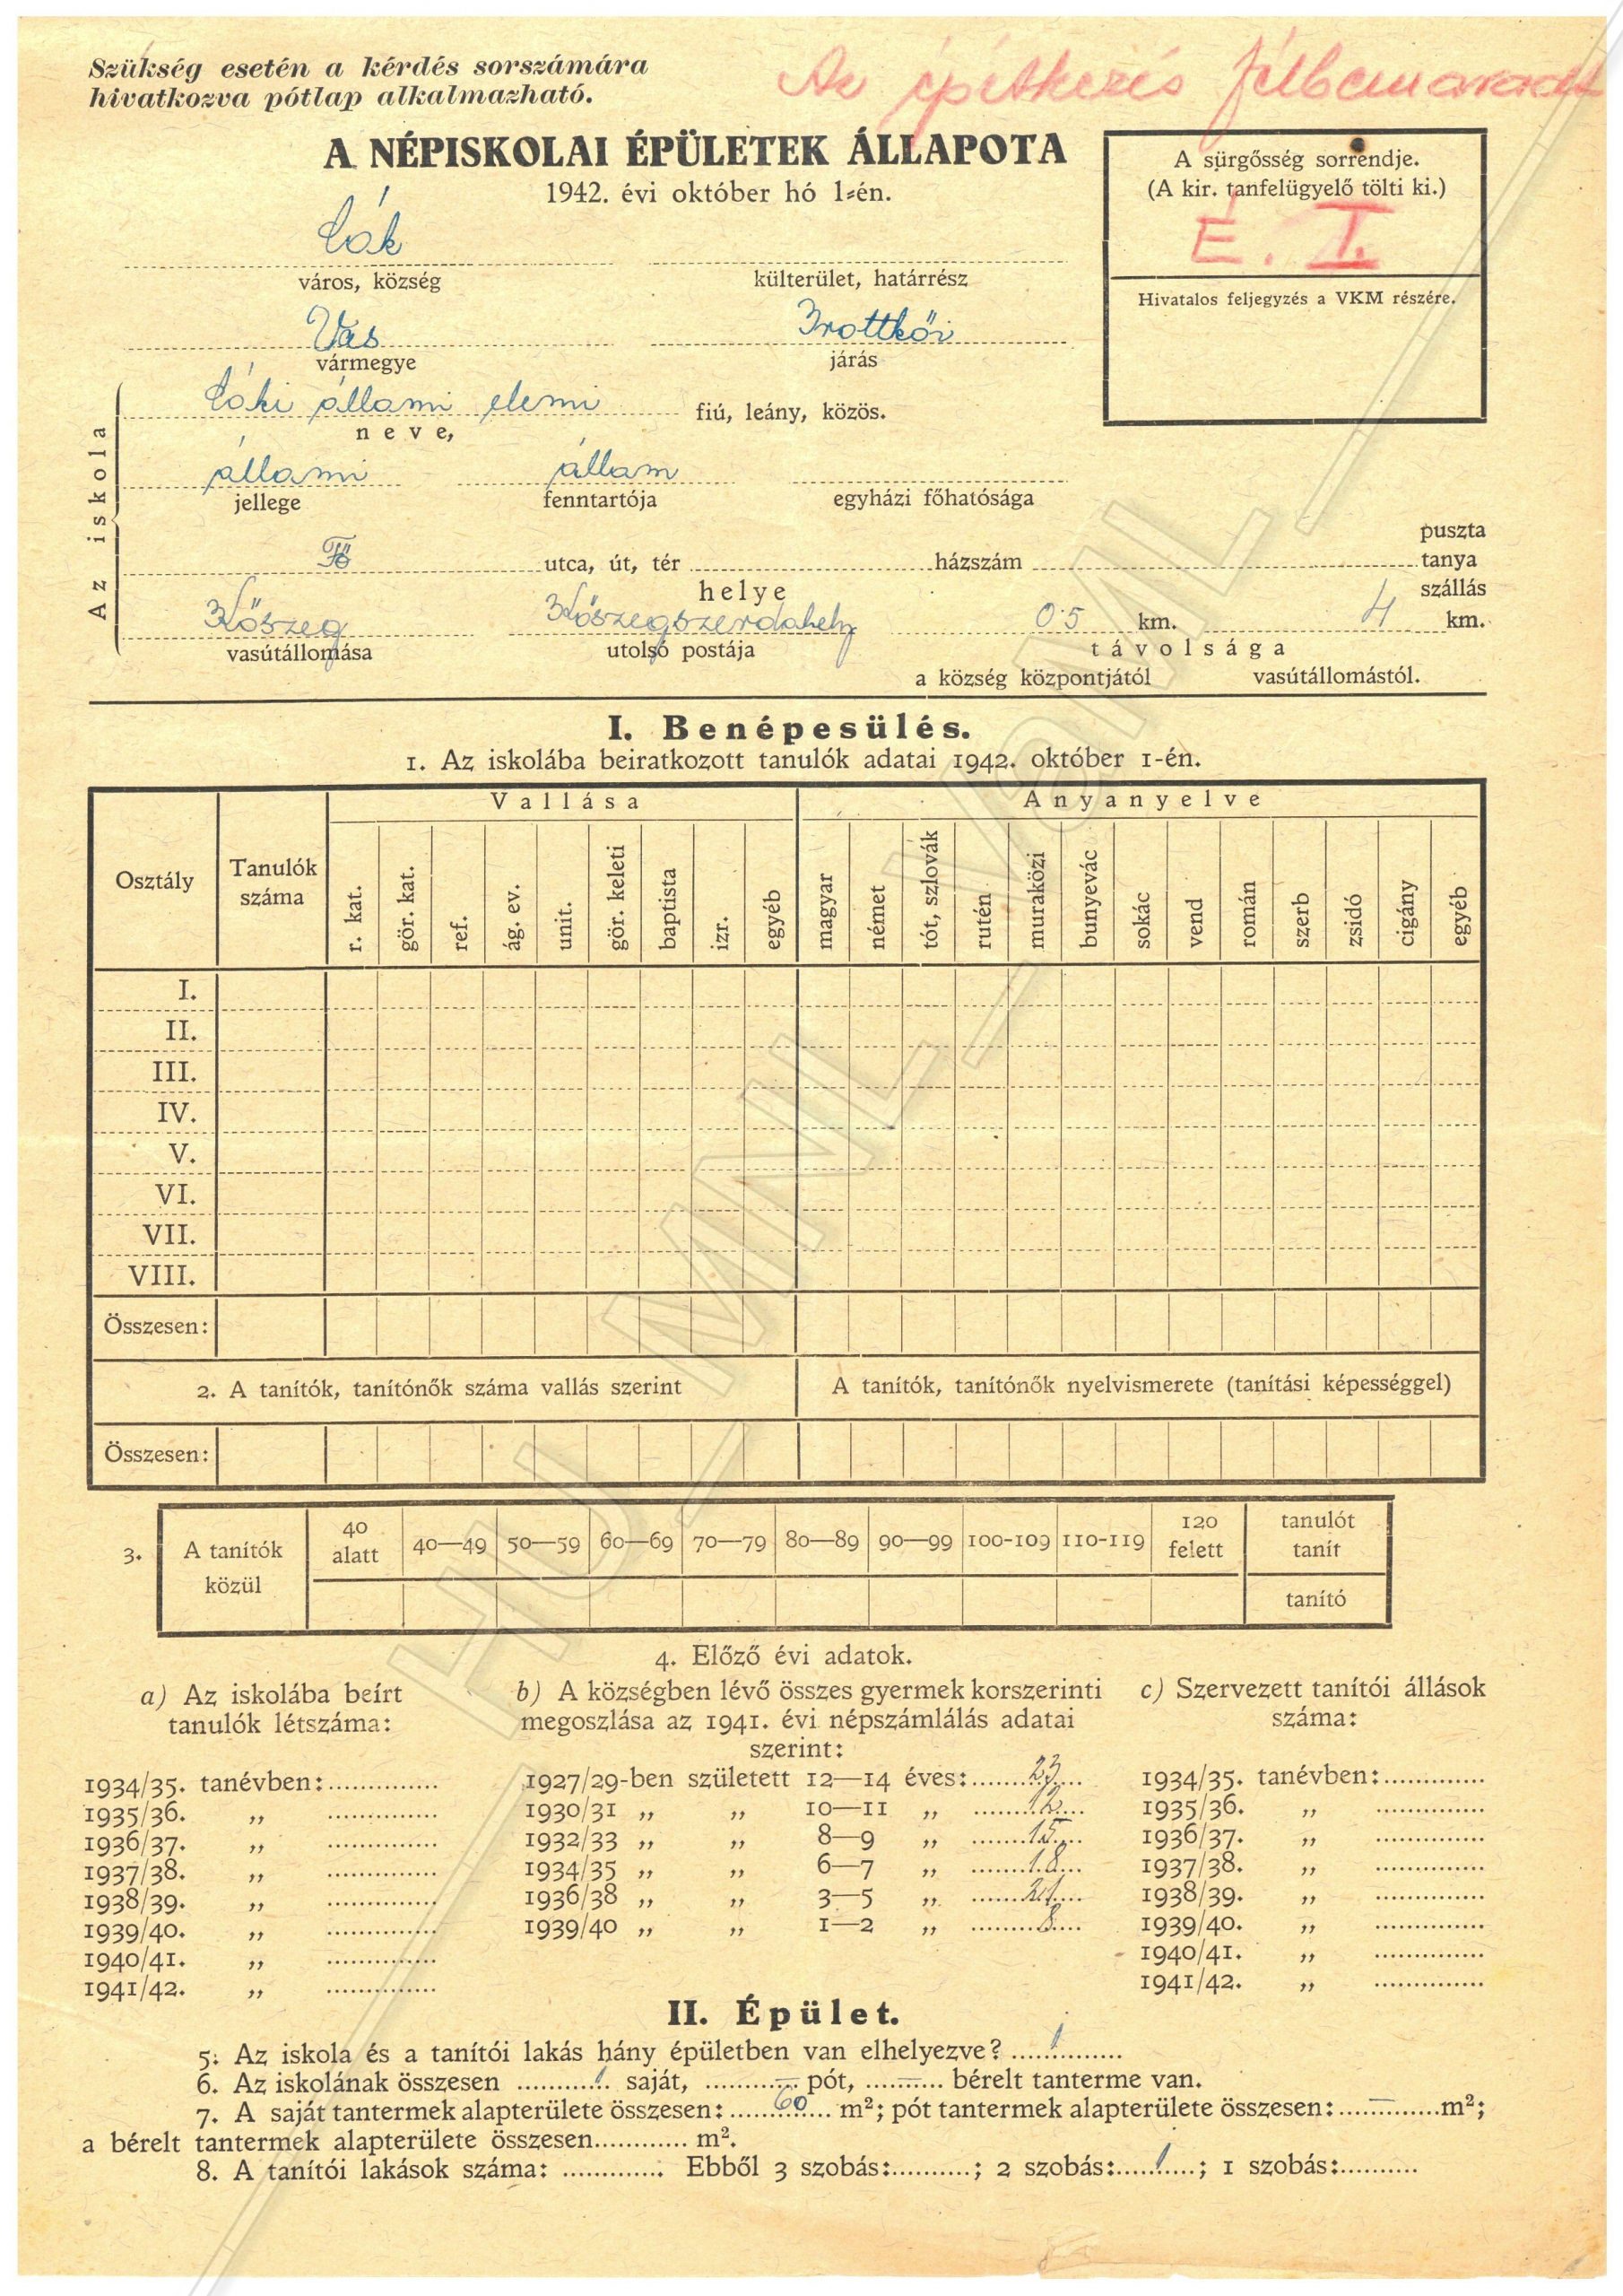 Szükség esetén a kérdés sorszámára
hivatkozva pótlap alkalmazható.
Az építkezés félbemaradt
A NÉPISKOLAI ÉPÜLETEK ÁLLAPOTA
1942. évi október hó 1-én.
A sürgősség sorrendje.
(A kir. tanfelügyelő tölti ki.)
É. I.
Hivatalos feljegyzés a VKM részére.
Cák
város, község külterület, határrész
Vas Irottkői
vármegye járás
Az iskola
Cáki állami elemi fiú, leány, közös.
neve,
állami állam
jellege fenntartója egyházi főhatósága
Fő utca, út, tér házszám puszta tanya szállás
helye
Kőszeg Kőszegszerdahely 0·5 km. 4 km.
vasútállomása utolsó postája távolsága
a község központjától vasútállomástól.
I. Benépesülés.
1. Az iskolába beiratkozott tanulók adatai 1942. október 1-én.
Osztály Tanulók száma Vallása Anyanyelve
r. kat. gör. kat. ref. ág. ev. unit. gör. keleti baptista izr. egyéb magyar német tót, szlovák rutén muraközi bunyevác sokác vend román szerb zsidó cigány egyéb
I.
II.
III.
IV.
V.
VI.
VII.
VIII.
Összesen:
2. A tanítók, tanítónők száma vallás szerint A tanítók, tanítónők nyelvismerete (tanítási képességgel)
Összesen:
3. A tanítók közül 40 alatt 40—49 50—59 60—69 70—79 80—89 90—99 100-109 110-119 120 felett tanulót tanít
tanító
4. Előző évi adatok.
a) Az iskolába beírt
tanulók létszáma:
1934/35. tanévben:
1935/36. „
1936/37. „
1937/38. „
1938/39. „
1939/40. „
1940/41. „
1941/42. „
b) A községben lévő összes gyermek korszerinti
megoszlása az 1941. évi népszámlálás adatai
szerint:
1927/29-ben született 12—14 éves: 23
1930/31 „ „ 10—11 „ 12
1932/33 „ „ 8—9 „ 15
1934/35 „ „ 6—7 „ 18
1936/38 „ „ 3—5 „
1939/40 „ „ 1—2 „ 8
c) Szervezett tanítói állások
száma:
1934/35. tanévben:
1935/36. „
1936/37. „
1937/38. „
1938/39. „
1939/40. „
1940/41. „
1941/42. „
II. Épület.
5. Az iskola és a tanítói lakás hány épületben van elhelyezve? 1
6. Az iskolának összesen 1 saját, — pót, — bérelt tanterme van.
7. A saját tantermek alapterülete összesen: 60 m²; pót tantermek alapterülete összesen: — m²;
a bérelt tantermek alapterülete összesen m².
8. A tanítói lakások száma: Ebből 3 szobás: ; 2 szobás: 1 ; 1 szobás:
HU_MNL_VaML